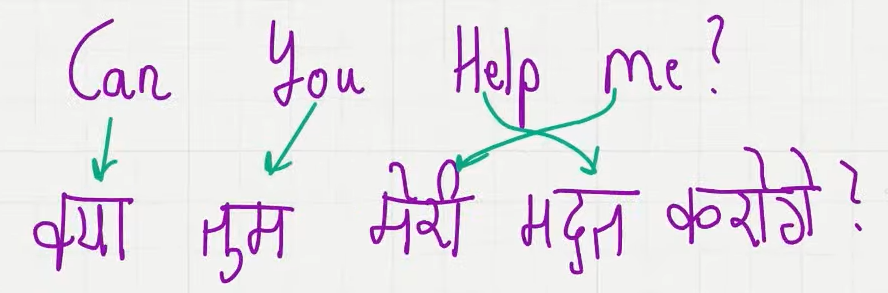 Can You Help Me?
क्या तुम मेरी मदत करोगे?